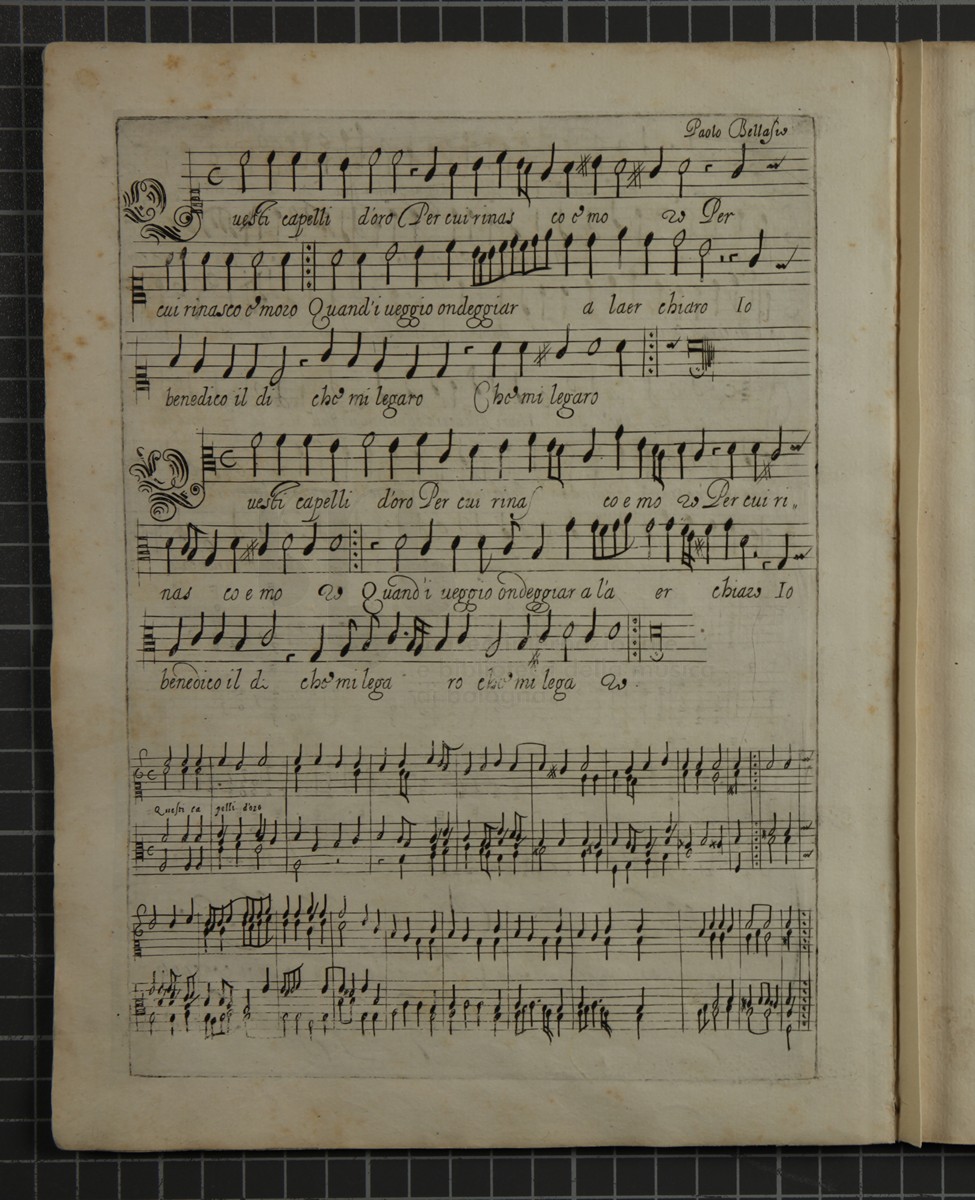 Paolo Bellasio
Questi capelli d'oro Per cui rinas co e mo ro Per
cui rinasco e moro Quand'i ueggio ondeggiar a laer chiaro Io
benedico il di che mi legaro Che mi legaro
Questi capelli d'oro Per cui rinas co e mo ro Per cui ri,,
nas co e mo ro Quand'i ueggio ondeggiar a l'a er chiaro Io
benedico il di che mi lega ro che mi lega ro.
Questi ca pelli d'oro